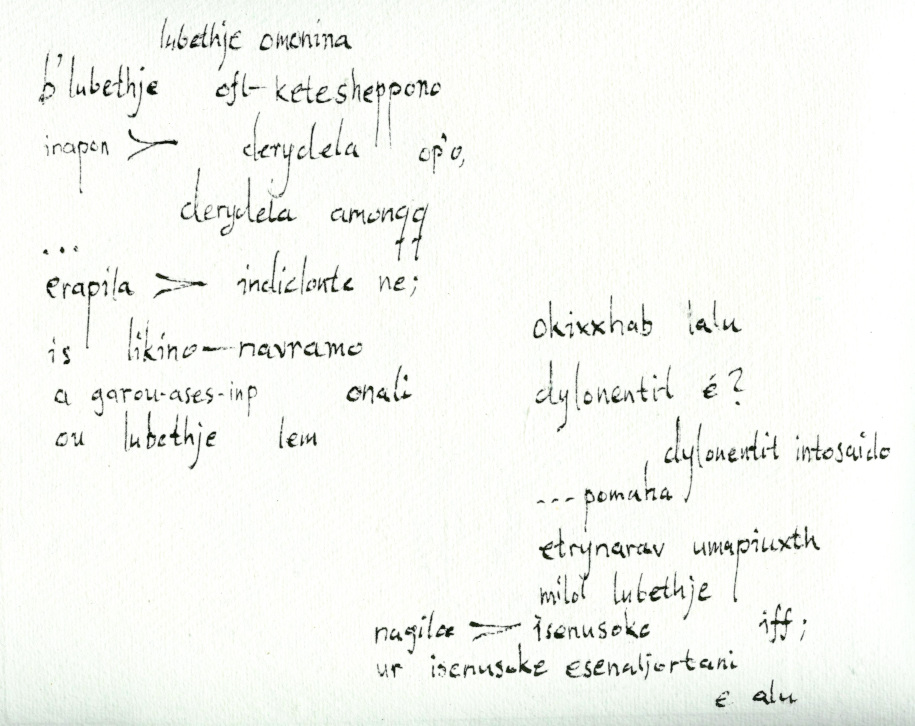 lubethje omenina
b'lubethje ofl-ketesheppono
inapon > derydela op'o,
derydela amongg
...
erapila > indiclonte ne;
is likino—navramo
a garou-ases-inp onali
ou lubethje lem
okixxhab lalu
dylonentil é?
dylonentit intosaido
---pomaha
etrynarav umapiuxth
milol lubethje
nagilae > isenusoke iff;
ur isenusoke esenaljortani
e alu